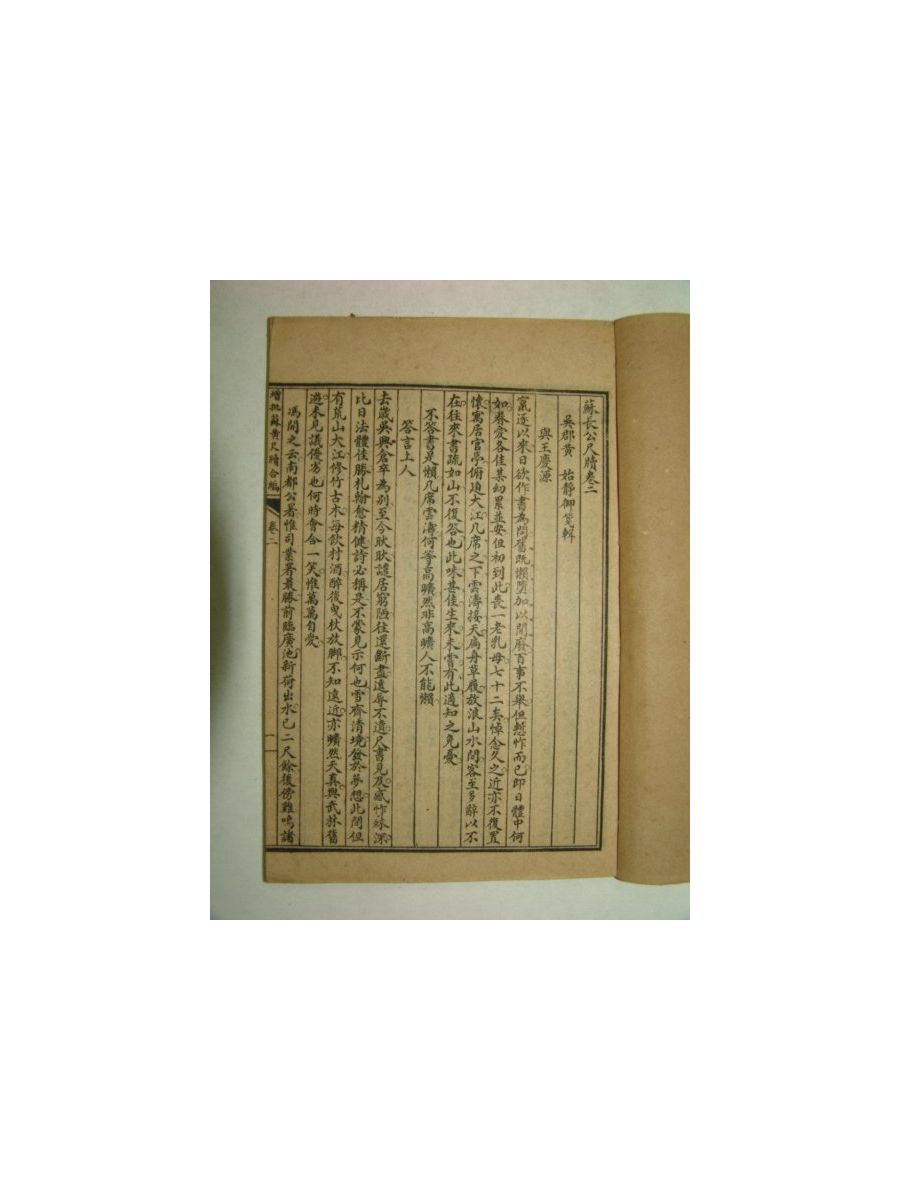 蘇長公尺牘卷二
吳郡黃 始靜御箋輯
與王慶源
竄逐以來日欲作書為問舊既懶墮加以閒廢百事不舉但慙怍而已即日體中何
如眷愛各佳某幼累並安但初到此喪一老乳母七十二矣悼念久之近亦不復置
懷寓居官亭俯迫大江几席之下雲濤接天扁舟草履放浪山水間客至多辭以不
在往來書疏如山不復答也此味甚佳生來未嘗有此適知之免憂
不答書是懶几席雲濤何等高曠然非高曠人不能懶
答言上人
去歲吳興倉卒為別至今耿耿譴居窮陋往還斷盡遠辱不遺尺書見及感怍殊深
比日法體佳勝札翰愈精健詩必稱是不蒙見示何也雪齋清境發於夢想此間但
有荒山大江修竹古木每飲村酒醉後曳杖放脚不知遠近亦曠然天真與武林舊
遊未見議優劣也何時會合一笑惟萬萬自愛
馮開之云南都公署惟司業署最勝前臨廣池新荷出水已二尺餘後傍雞鳴諸
增批蘇黃尺牘合編 卷二 一